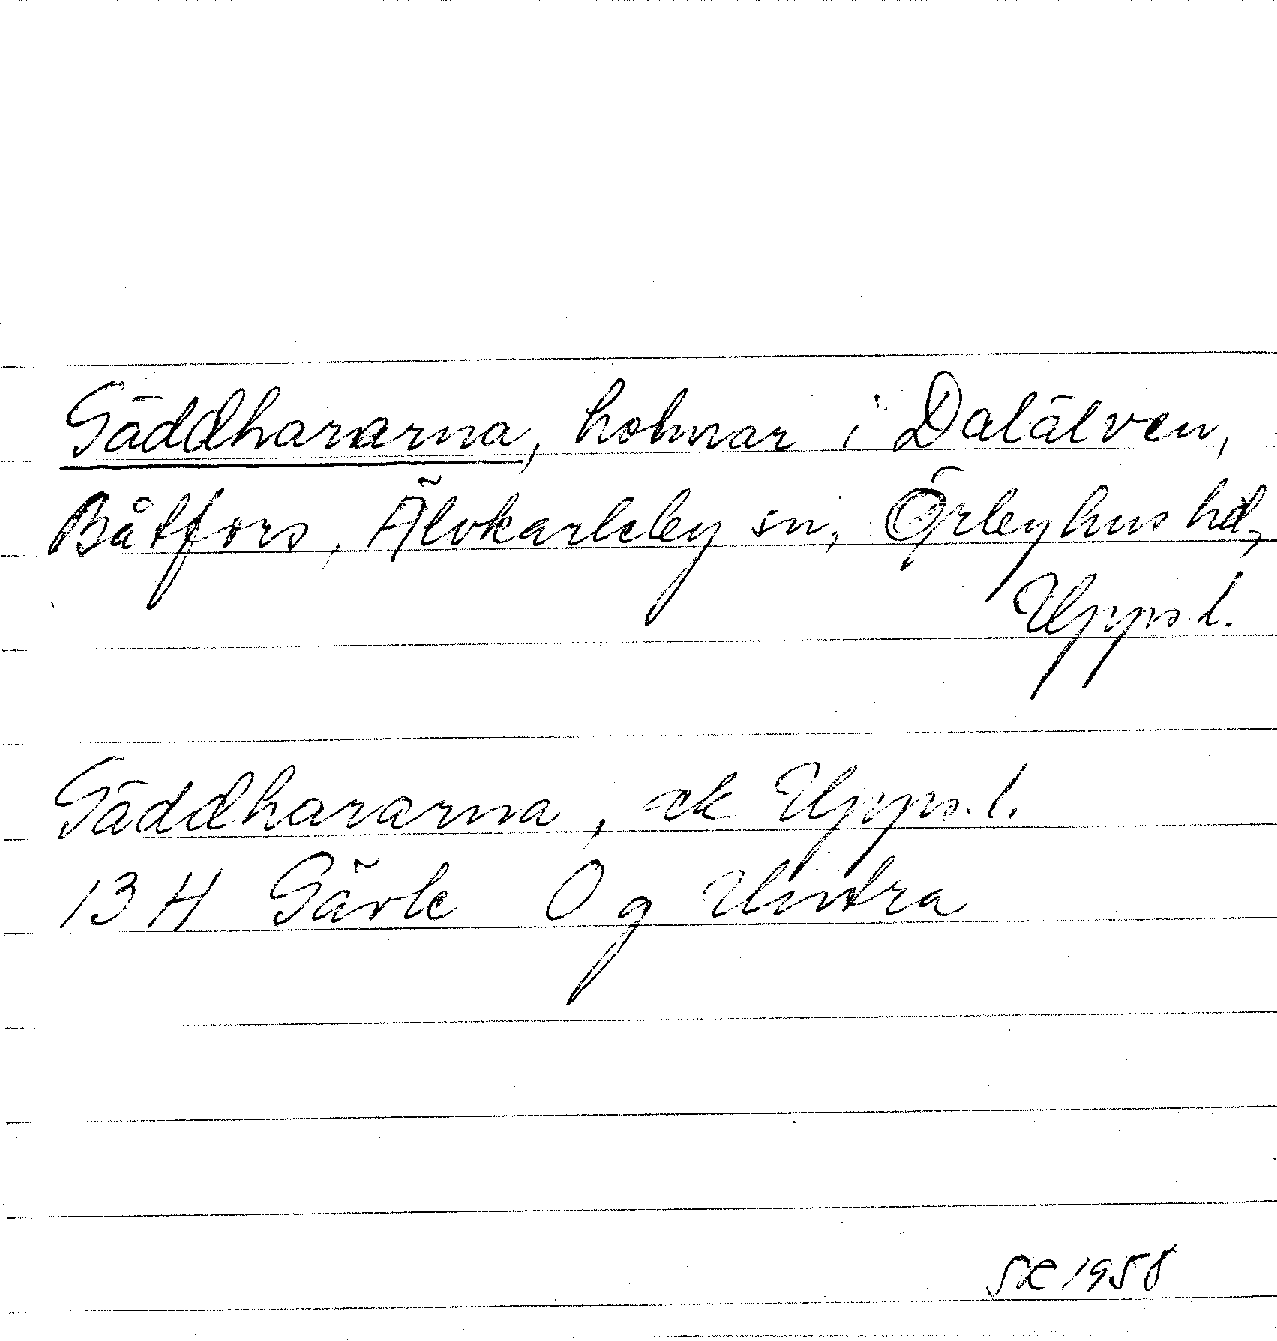 Gäddhararna, holmar i Dalälven,
Båtfors, Älvkarleby sn, Örbyhus hd,
Upps. l.
Gäddhararna, ek Upps. l.
13 H Gävle O g Untra
SÆ 1958